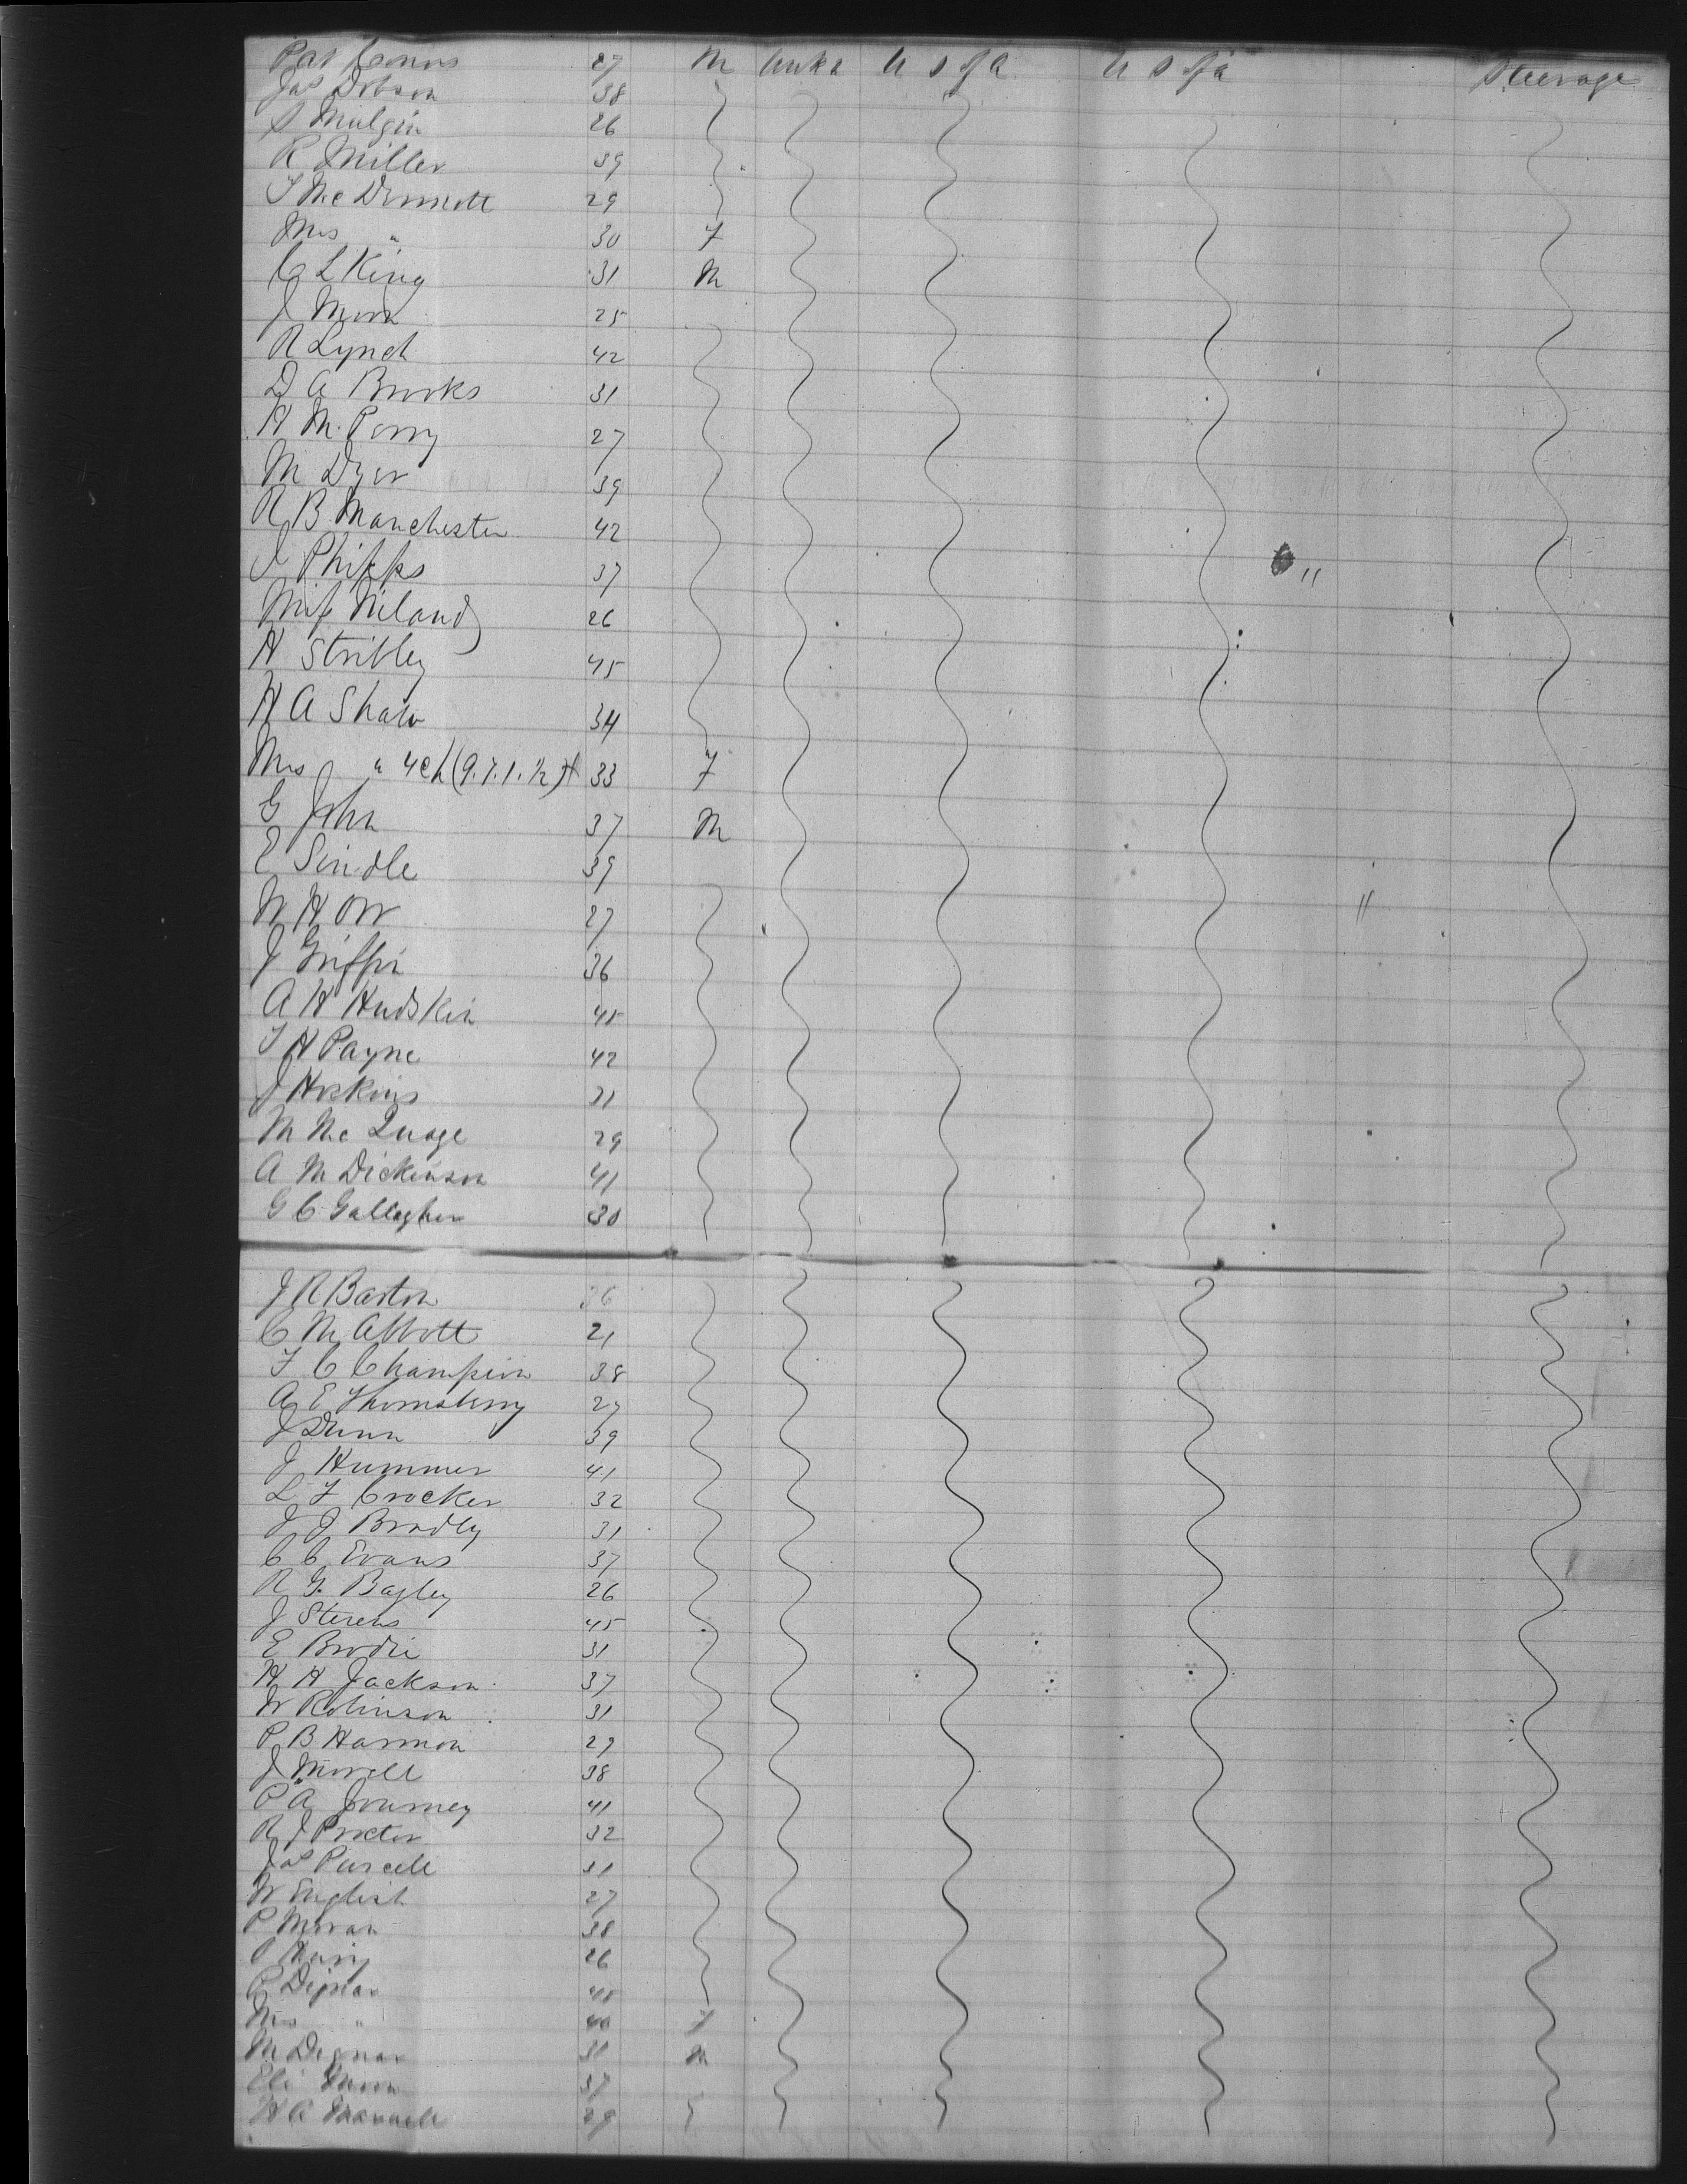 Pat Connors 27 M U S of A U S of A Steerage
Jas Dobson 38
S Mulgin 26
R Miller 39
T McDermott 29
Mrs " 30 F
C L King 31 M
J Moon 25
R Lynch 42
D A Brooks 31
H M Perry 27
M Dyer 39
R B Manchester 42
J Phipps 37 "
Miss Niland 26
H Stribley 45
H A Shaw 34
Mrs " 4 ch (9.7.1.½) 33 F
G John 37 M
E Sindle 39
W H Orr 27 "
J Griffin 36
A H Hudskin 45
T H Payne 42
J Hoskins 31
M McQuage 29
A M Dickinson 41
G C Gallagher 30
J R Barton 36
C M Abbott 21
F C Champion 38
A E Thornsberry 27
J Dunn 39
J Hummer 41
L F Crocker 32
J J Bradly 31
C C Evans 37
R G Bagley 26
J Stevens 45
E Brodie 31
H H Jackson 37
W Robinson 31
P B Harmon 27
J Morell 38
P A Journey 41
R J Procter 32
Jas Purcell 31
W English 27
P Moran 38
26
P Dignan 45
Mrs " 40 F
M Degnan 31 M
Eli Moon 37
H A Maxwell 29